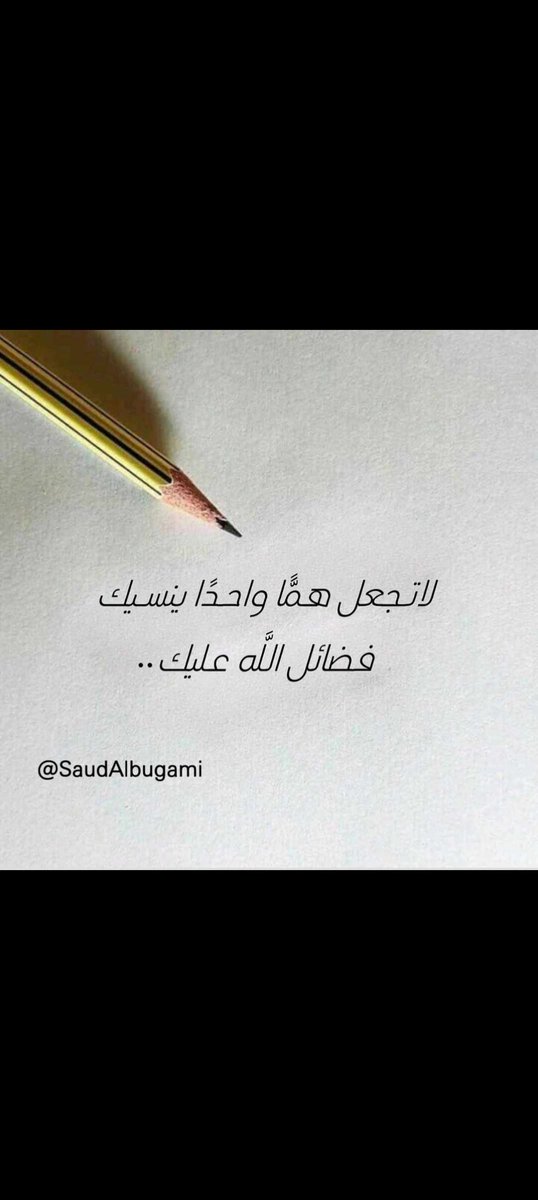 لاتجعل همًّا واحدًا ينسيك
فضائل اللَّه عليك..
@SaudAlbugami